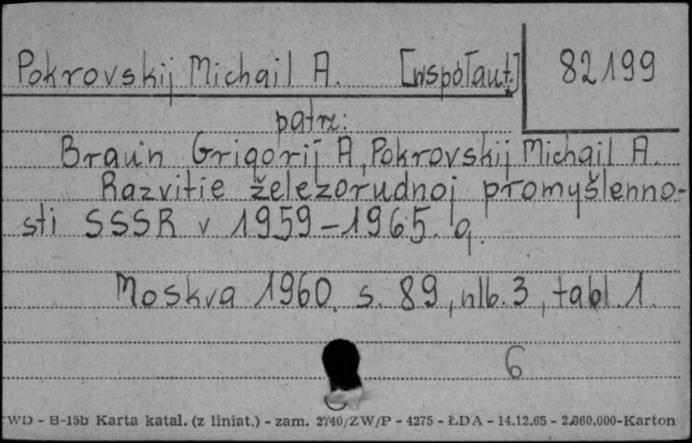 Pokrovskij Michail A. [współaut.] 82199
patrz:
Braun Grigorij A, Pokrovskij Michail A.
Razvitie železorudnoj promyšlenno-
sti SSSR v 1959-1965. g.
Moskva 1960. s. 89, nlb. 3, tabl 1.
6
WD - B-15b Karta katal. (z liniat.) - zam. 2740/ZW/P - 4275 - ŁDA - 14.12.65 - 2.860.000-Karton